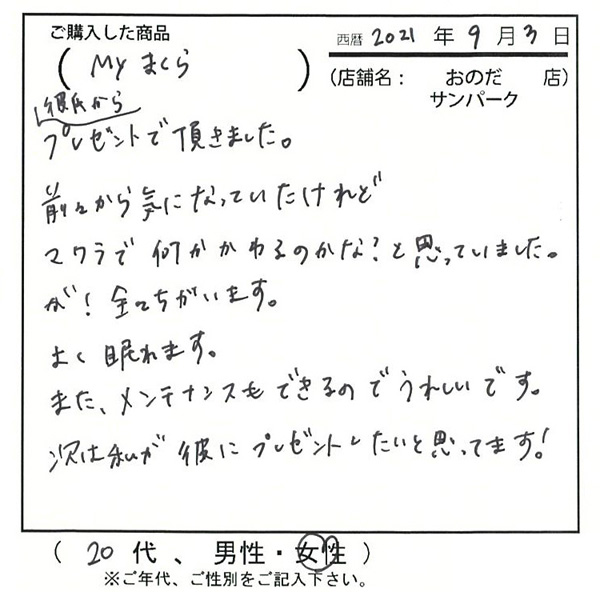 ご購入した商品
西暦 2021 年 9 月 3 日
( Myまくら )
(店舗名： おのだサンパーク 店)
彼氏から
プレゼントで頂きました。
前々から気になっていたけれど
マクラで何かかわるのかな？と思っていました。
が！全てちがいます。
よく眠れます。
また、メンテナンスもできるのでうれしいです。
次は私が彼にプレゼントしたいと思ってます！
( 20 代 、 男性・女性 )
※ご年代、ご性別をご記入下さい。